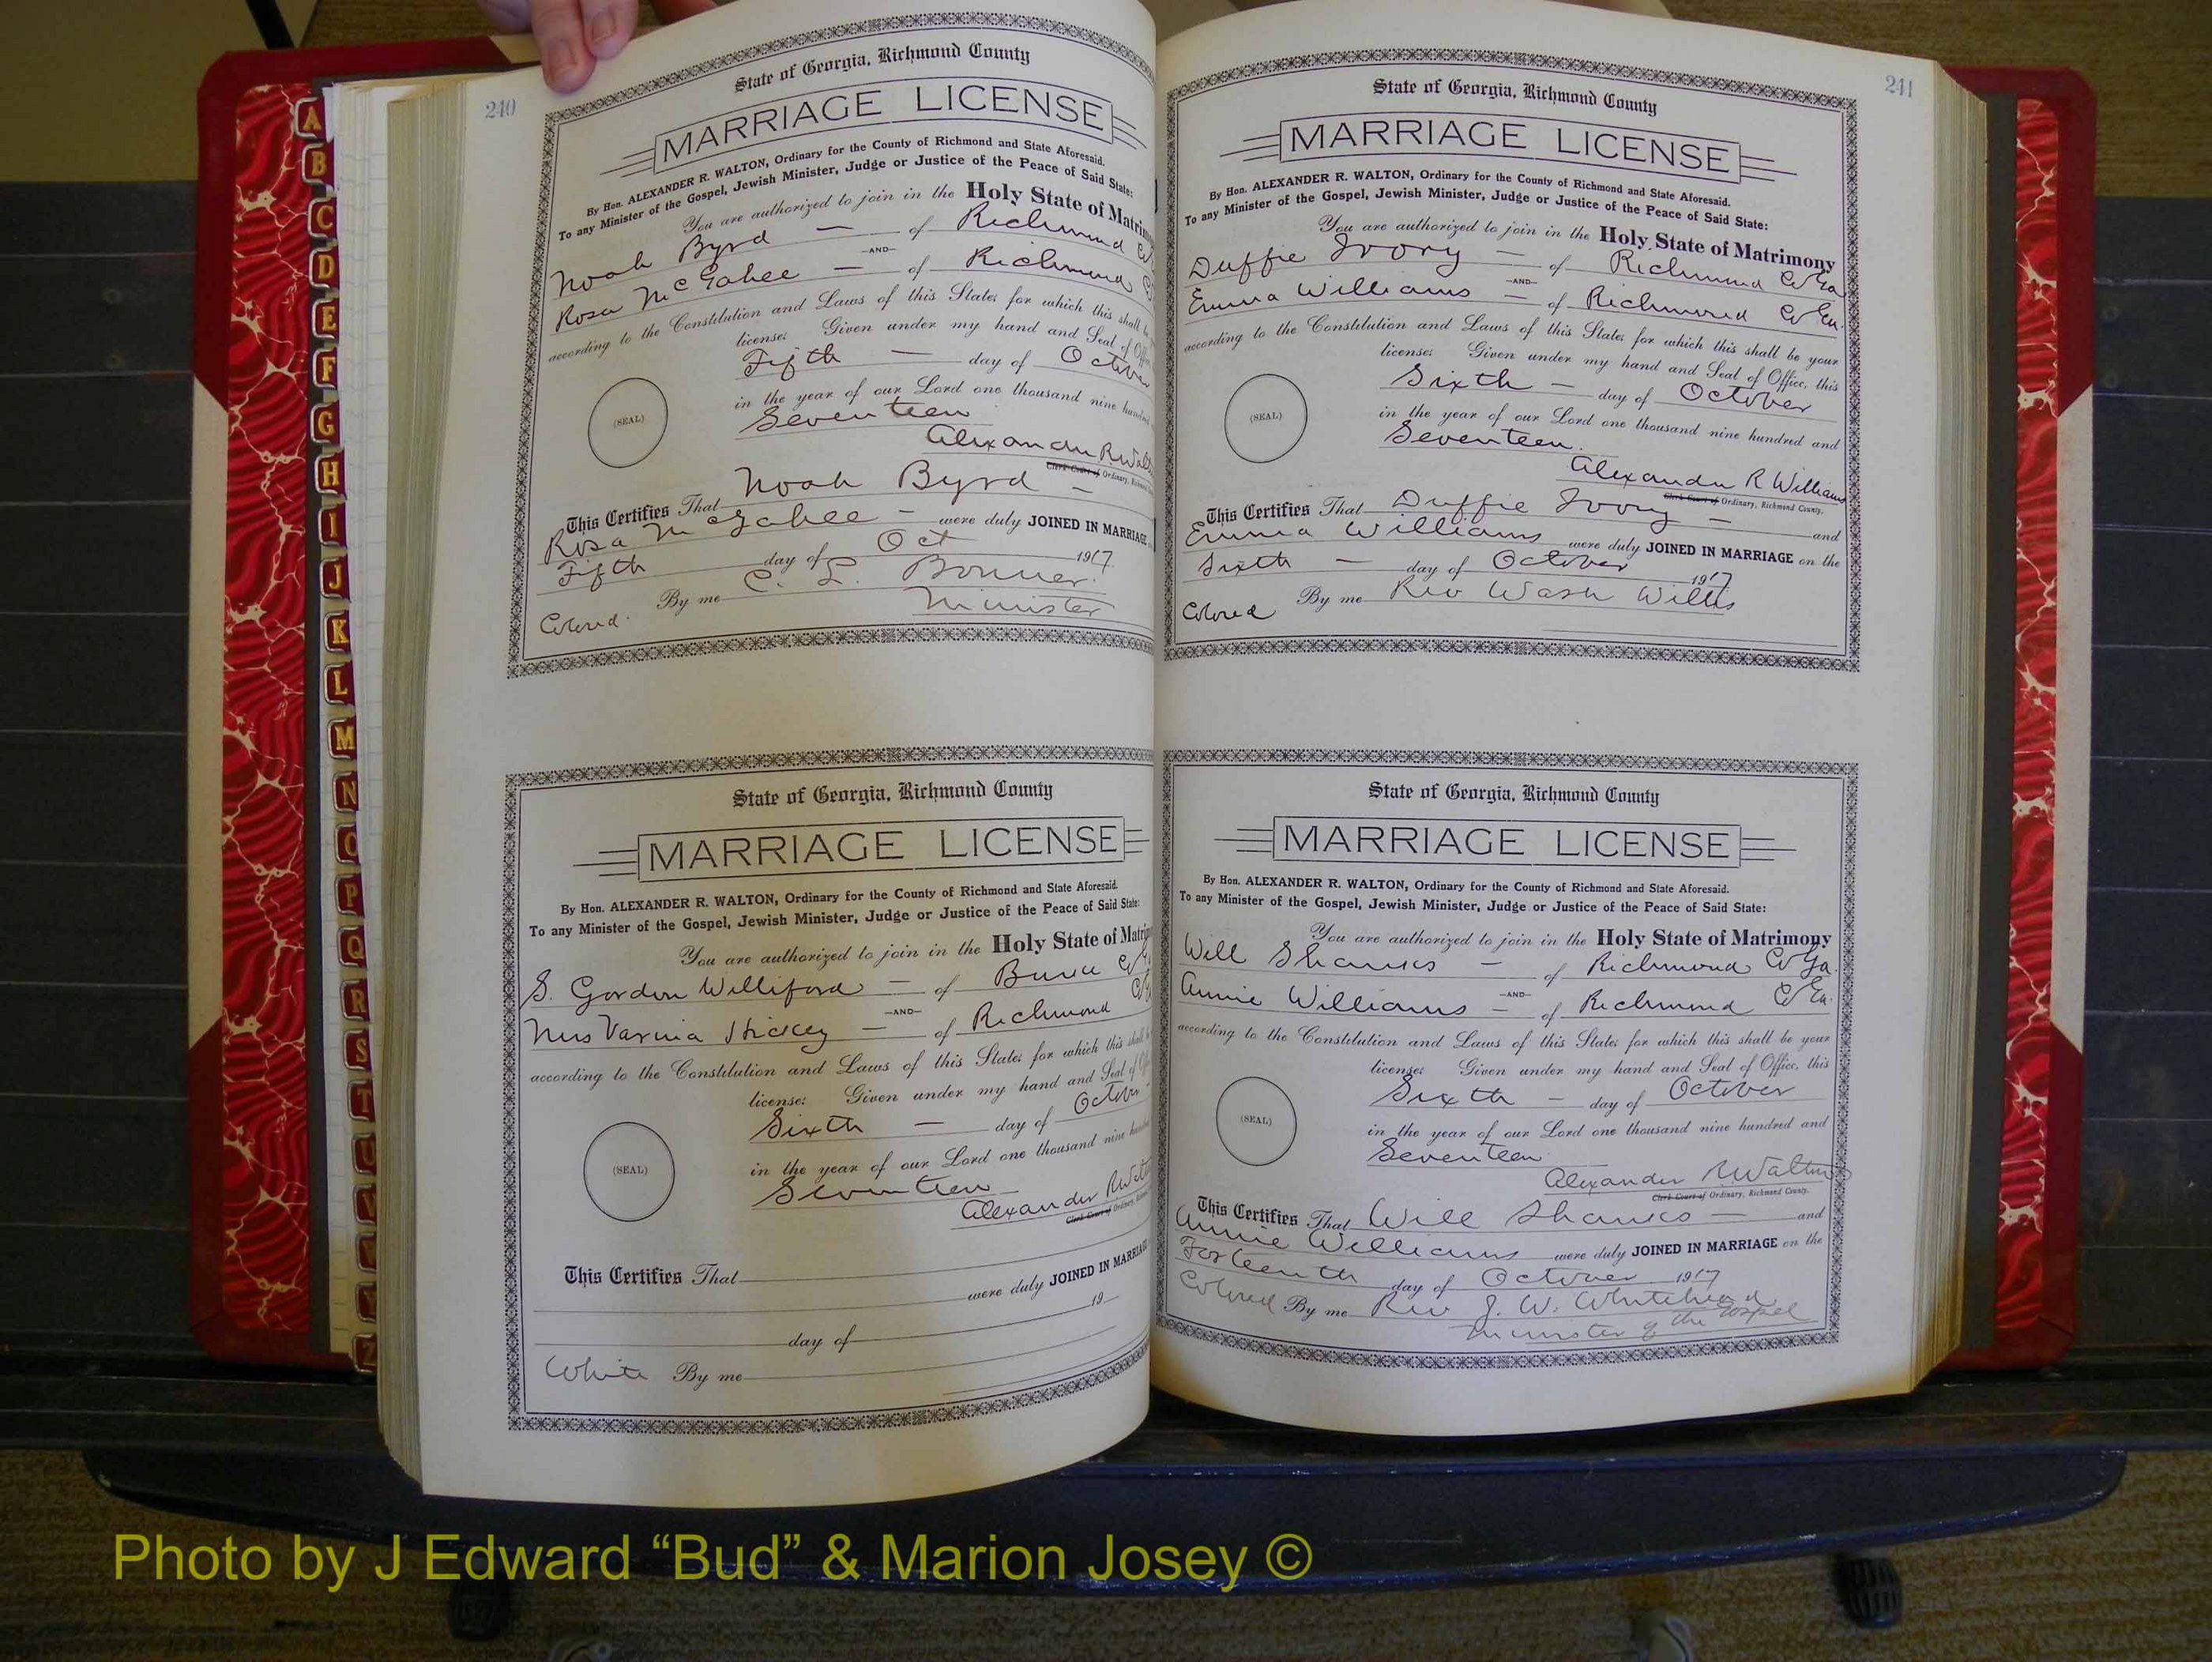 240
State of Georgia, Richmond County
MARRIAGE LICENSE
By Hon. ALEXANDER R. WALTON, Ordinary for the County of Richmond and State Aforesaid.
To any Minister of the Gospel, Jewish Minister, Judge or Justice of the Peace of Said State:
You are authorized to join in the Holy State of Matrim
Noah Byrd — of Richmond Co
—AND—
Rosa McGahee — of Richmond C
according to the Constitution and Laws of this State; for which this shall b
license: Given under my hand and Seal of Offi
Fifth — day of October
(SEAL)
in the year of our Lord one thousand nine hundred
Seventeen
Alexander R. Walt
Clerk Court of Ordinary, Richmond
This Certifies That Noah Byrd —
Rosa McGahee — were duly JOINED IN MARRIAGE
Fifth day of Oct 1917.
By me C. L. Bonner.
Colored. Minister
State of Georgia, Richmond County
MARRIAGE LICENSE
By Hon. ALEXANDER R. WALTON, Ordinary for the County of Richmond and State Aforesaid.
To any Minister of the Gospel, Jewish Minister, Judge or Justice of the Peace of Said State:
You are authorized to join in the Holy State of Matrim
S. Gordon Williford — of Burke Co
—AND—
Mrs Varnia Hickey — of Richmond Co
according to the Constitution and Laws of this State; for which this shall b
license: Given under my hand and Seal of Off
Sixth — day of October
(SEAL)
in the year of our Lord one thousand nine hundred
Seventeen
Alexander R Walt
Clerk Court of Ordinary,
This Certifies That
were duly JOINED IN MARRIAGE
19
day of
White By me
241
State of Georgia, Richmond County
MARRIAGE LICENSE
By Hon. ALEXANDER R. WALTON, Ordinary for the County of Richmond and State Aforesaid.
To any Minister of the Gospel, Jewish Minister, Judge or Justice of the Peace of Said State:
You are authorized to join in the Holy State of Matrimony
Duffie Ivory — of Richmond Co Ga
—AND—
Emma Williams — of Richmond Co Ga.
according to the Constitution and Laws of this State; for which this shall be your
license: Given under my hand and Seal of Office, this
Sixth — day of October
(SEAL)
in the year of our Lord one thousand nine hundred and
Seventeen.
Alexander R Williams
Clerk Court of Ordinary, Richmond County.
This Certifies That Duffie Ivory — and
Emma Williams were duly JOINED IN MARRIAGE on the
Sixth — day of October 1917
Colored By me Rev Wash Willis
State of Georgia, Richmond County
MARRIAGE LICENSE
By Hon. ALEXANDER R. WALTON, Ordinary for the County of Richmond and State Aforesaid.
To any Minister of the Gospel, Jewish Minister, Judge or Justice of the Peace of Said State:
You are authorized to join in the Holy State of Matrimony
Will Shanks — of Richmond Co Ga.
—AND—
Annie Williams — of Richmond Co Ga.
according to the Constitution and Laws of this State; for which this shall be your
license: Given under my hand and Seal of Office, this
Sixth — day of October
(SEAL)
in the year of our Lord one thousand nine hundred and
Seventeen
Alexander R Walton
Clerk Court of Ordinary, Richmond County.
This Certifies That Will Shanks — and
Annie Williams were duly JOINED IN MARRIAGE on the
Forteenth day of October 1917
Colored By me Rev J. W. Whitehead
Minister of the Gospel
A
B
C
D
E
F
G
H
I
J
K
L
M
N
O
P
Q
R
S
T
U
V
Z
Photo by J Edward “Bud” & Marion Josey ©